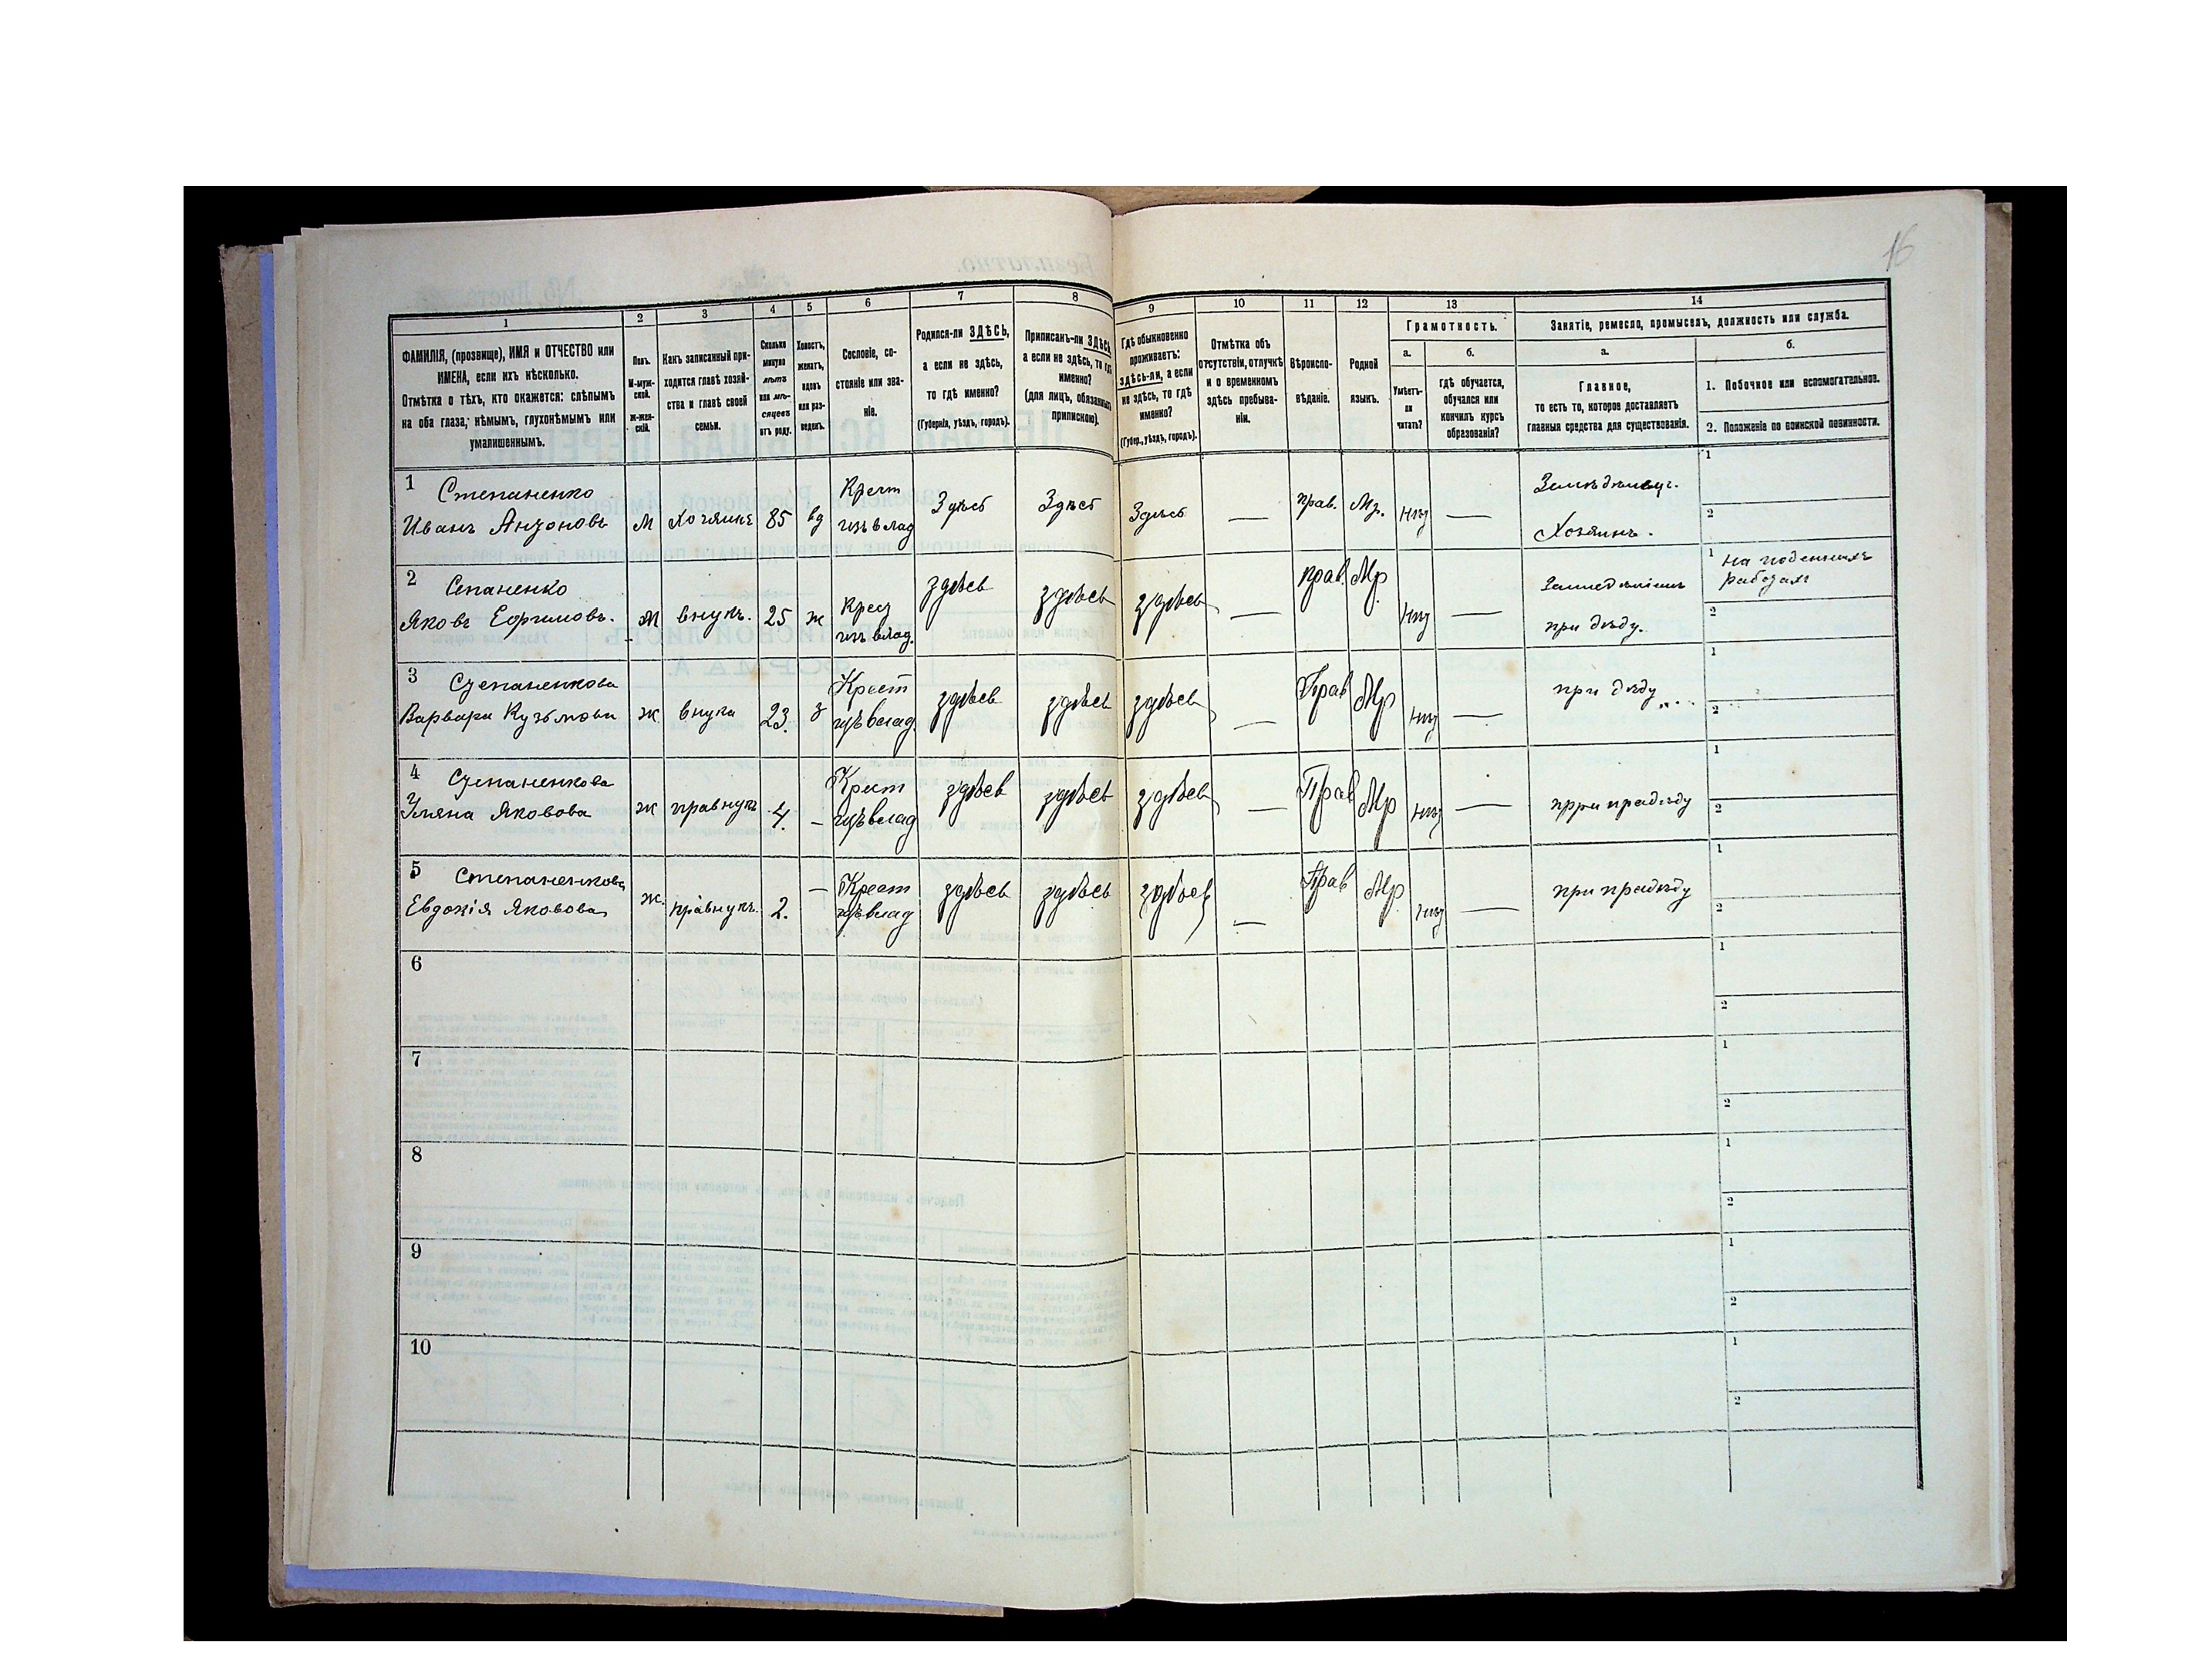 16
1 2 3 4 5 6 7 8 9 10 11 12 13 14
ФАМИЛІЯ, (прозвище), ИМЯ и ОТЧЕСТВО или
ИМЕНА, если ихъ нѣсколько.
Отмѣтка о тѣхъ, кто окажется: слѣпымъ
на оба глаза, нѣмымъ, глухонѣмымъ или
умалишеннымъ.
Полъ.
М-муж-
ской.
ж-жен-
скій.
Какъ записанный при-
ходится главѣ хозяй-
ства и главѣ своей
семьи.
Сколько
минуло
лѣтъ
или мѣ-
сяцевъ
отъ роду.
Холостъ,
женатъ,
вдовъ
или раз-
веденъ.
Сословіе, со-
стояніе или зва-
ніе.
Родился-ли ЗДѢСЬ,
а если не здѣсь,
то гдѣ именно?
(Губернія, уѣздъ, городъ).
Приписанъ-ли ЗДѢСЬ,
а если не здѣсь, то гдѣ
именно?
(для лицъ, обязанныхъ
припискою).
Гдѣ обыкновенно
проживаетъ:
здѣсь-ли, а если
не здѣсь, то гдѣ
именно?
(Губер., уѣздъ, городъ).
Отмѣтка объ
отсутствіи, отлучкѣ
и о временномъ
здѣсь пребыва-
ніи.
Вѣроиспо-
вѣданіе.
Родной
языкъ.
Грамотность.
а.
Умѣетъ-
ли
читать?
б.
гдѣ обучается,
обучался или
кончилъ курсъ
образованія?
Занятіе, ремесло, промыселъ, должность или служба.
а.
Главное,
то есть то, которое доставляетъ
главныя средства для существованія.
б.
1. Побочное или вспомогательное.
2. Положеніе по воинской повинности.
1 Степаненко
Иванъ Антоновъ М Хозяинъ 85 вд Крест изъ влад Здѣсь Здѣсь Здѣсь — прав. Мр. нѣт — Земледѣлецъ. Хозяинъ.
1
2
2 Сепаненко
Яковъ Ефимовъ. М внукъ. 25 ж Крест изъ влад. здѣсь здѣсь здѣсь — прав. Мр нѣт — при дѣду.
1 на поденныхъ
работахъ
2
3 Степаненкова
Варвара Кузьмова ж внука 23. з Крест изъ влад. здѣсь здѣсь здѣсь — Прав Мр нѣт — при дѣду
1
2
4 Степаненкова
Уляна Яковова ж правнука 4. — Крест изъ влад здѣсь здѣсь здѣсь — Прав Мр нѣт — прри прадѣду
1
2
5 Степаненкова
Евдокія Яковова ж. правнукъ. 2. — Крест изъ влад здѣсь здѣсь здѣсь — Прав Мр нѣт — при прадѣду
1
2
6
1
2
7
1
2
8
1
2
9
1
2
10
1
2